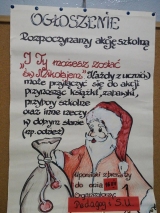 OGŁOSZENIE
Rozpoczynamy akcję szkolną
"I Ty możesz zostać
św. Mikołajem". Każdy z uczniów
może przyłączyć się do akcji
przynosząc książki, zabawki,
przybory szkolne
oraz inne rzeczy
w dobrym stanie
(np. odzież)
Upominki zbieramy
do dnia
Pedagog i S.U.